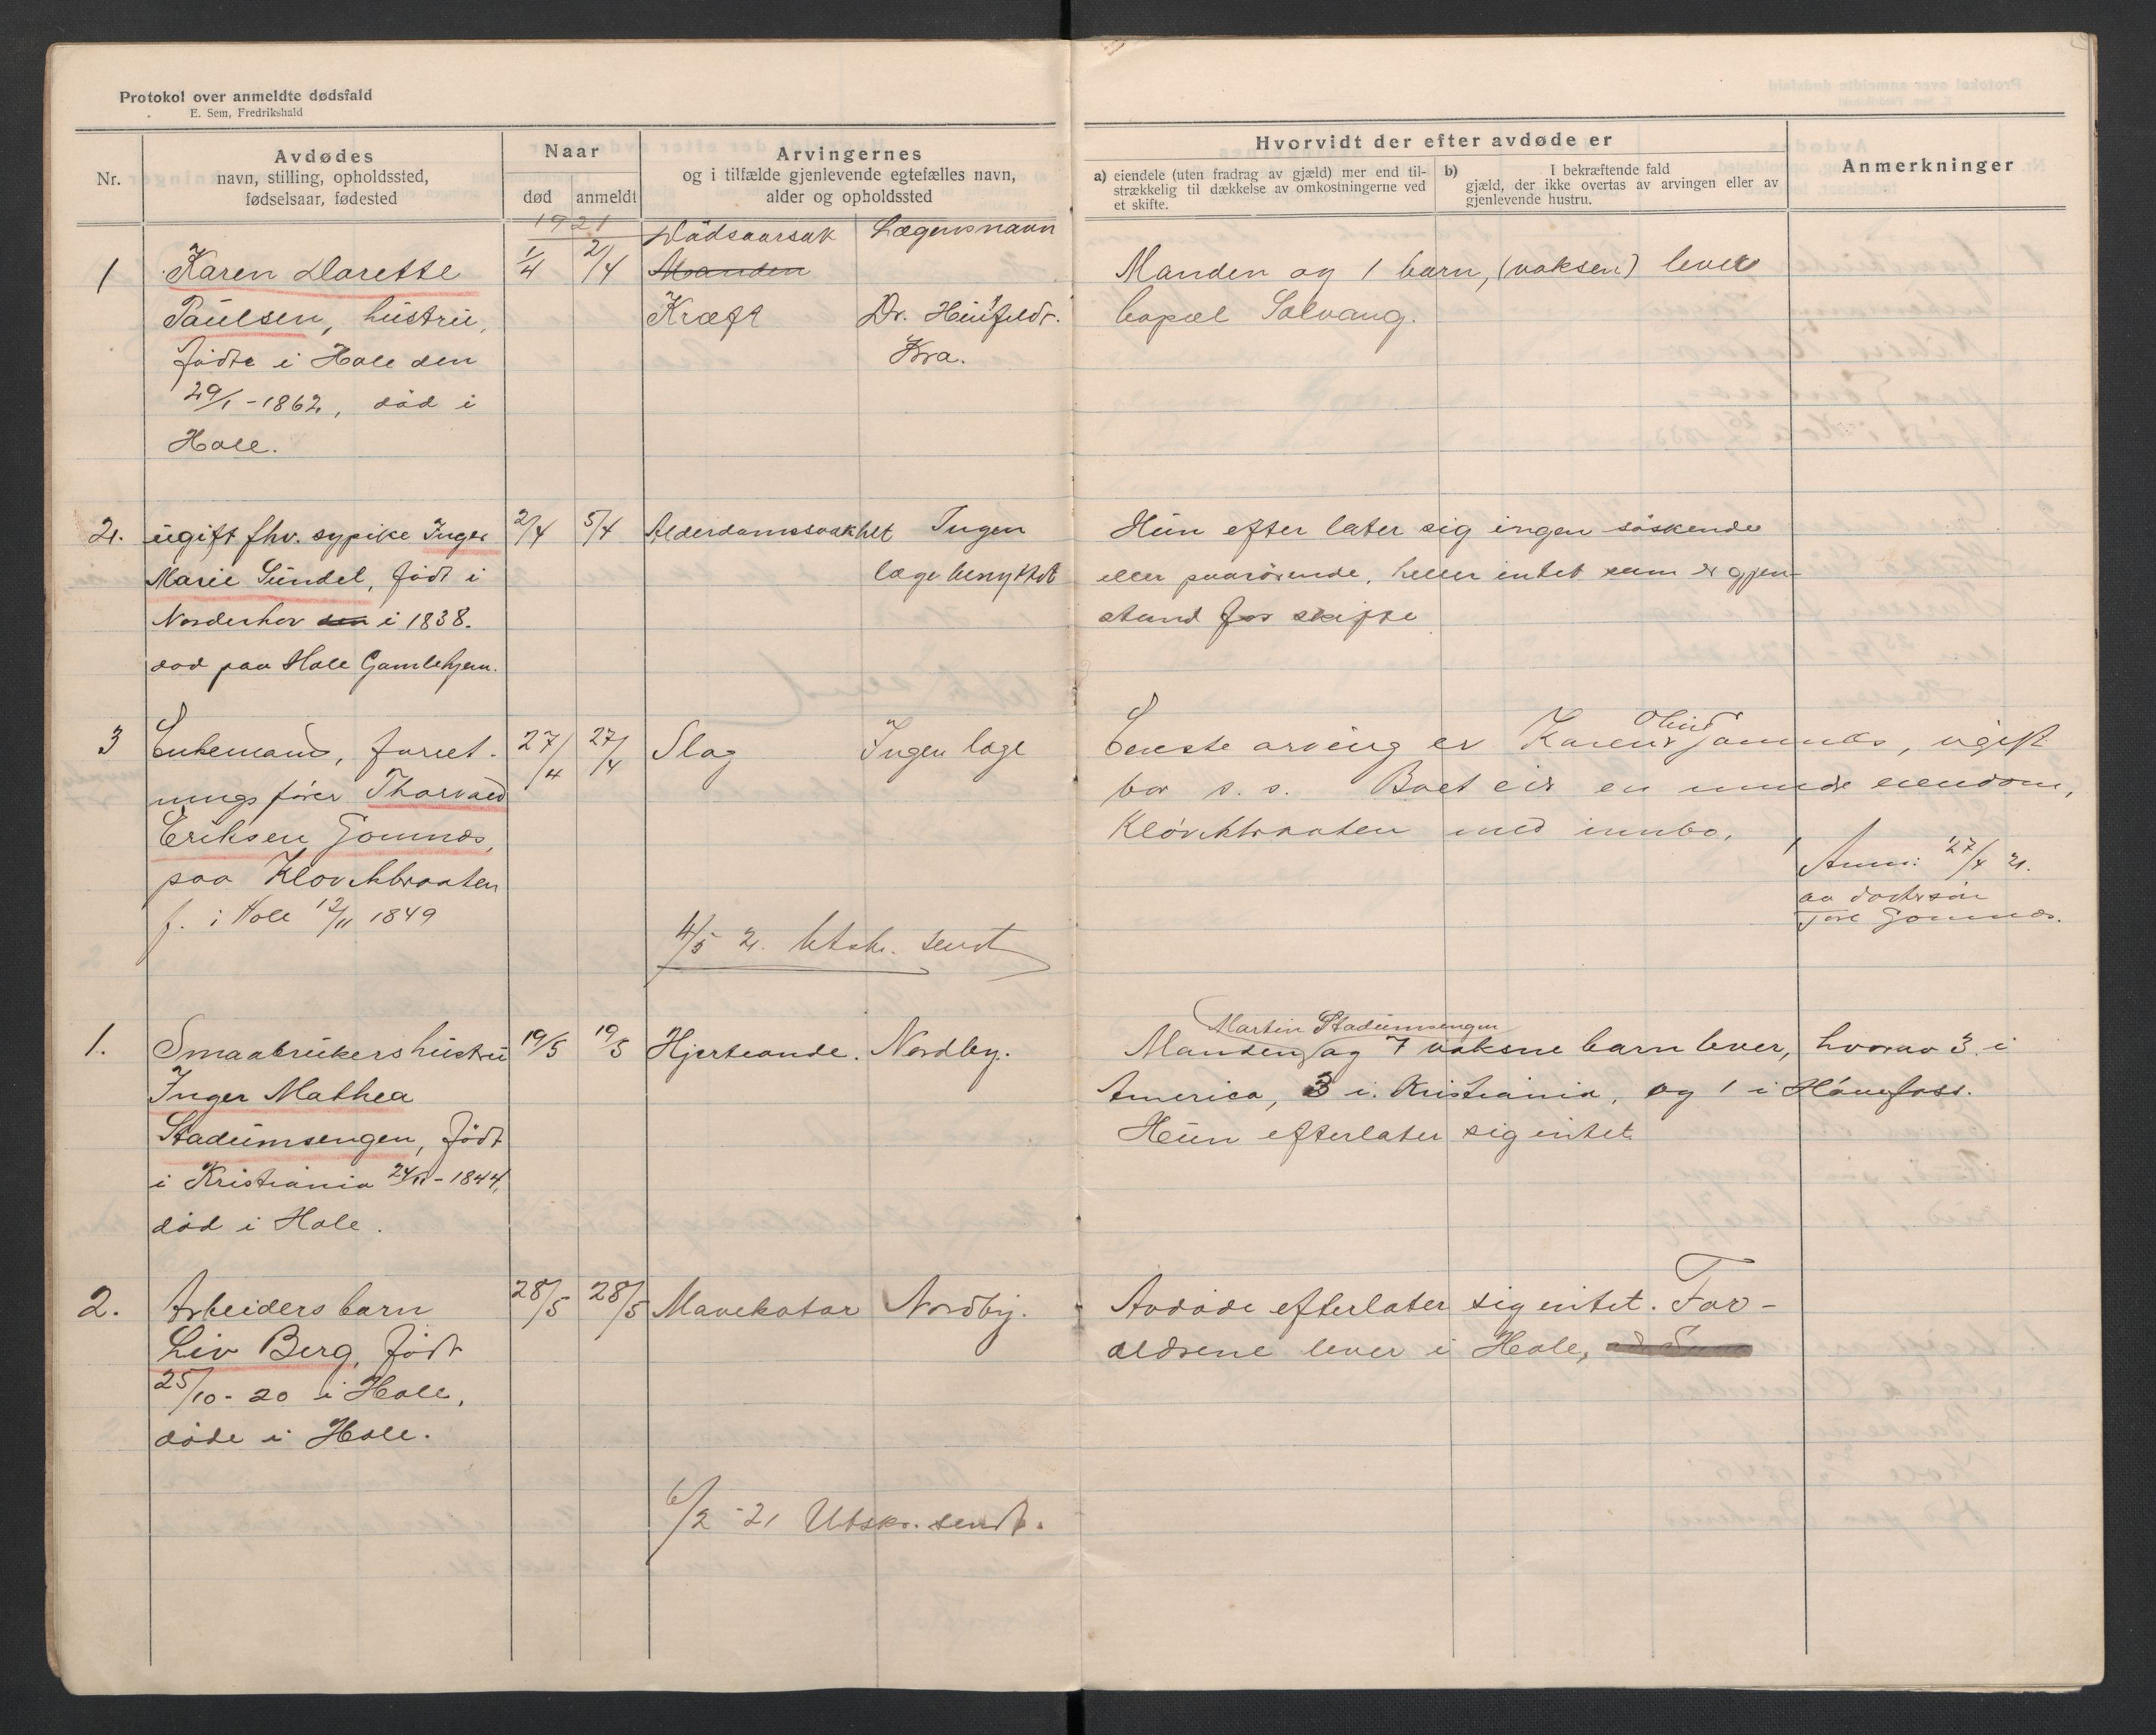 Protokol over anmeldte dødsfald
E. Sem, Fredrikshald
Nr.
Avdødes
navn, stilling, opholdssted,
fødselsaar, fødested
Naar
død
anmeldt
Arvingernes
og i tilfælde gjenlevende egtefælles navn,
alder og opholdssted
Hvorvidt der efter avdøde er
a) eiendele (uten fradrag av gjæld) mer end til-
strækkelig til dækkelse av omkostningerne ved
et skifte.
b) I bekræftende fald
gjæld, der ikke overtas av arvingen eller av
gjenlevende hustru.
Anmerkninger
1921
Dödsaarsak Lægens navn
1
Karen Dorette
Paulsen, hustru,
födte i Hole den
29/1-1862, död i
Hole.
1/4
2/4
Manden
Kræft
Dr. Heinfeldt.
Kra.
Manden og 1 barn, (voksen) lever
Solvang.
2.
ugift fhv. sypike Inger
Marie Sundel, födt i
Norderhov den i 1838.
död paa Hole Gamlehjem.
2/4
5/4
Alderdomssvakhet
Ingen
læge benyttet
Hun efter later sig ingen söskende
eller paarörende, heller intet som er gjen-
stand for skifte
3
Enkemand, forret-
ningsförer Thorvald
Eriksen Gomnæs,
paa Klövikbraaten
f. i Hole 12/11 1849
27/4
27/4
Slag
Ingen læge
Eneste arving er Karen Gomnæs, ugift
bor s. s. Boet eier en mindre eiendom,
Klövikbraaten med innbo.
Anm: 27/4 21.
av dattersön
Gomnæs.
4/5 21. Utskr. sendt
1.
Smaabrukers hustru
Inger Mathea
Stadumsengen, födt
i Kristiania 24/11-1844,
död i Hole.
19/5
19/5
Hjerteonde.
Nordby.
Martin Stadumsengen
Manden og 7 voksne barn lever, hvorav 3 i
America, 3 i Kristiania, og 1 i Hönefoss.
Hun efterlater sig intet.
2.
Arbeiders barn
Liv Berg, födt
25/10-20 i Hole,
döde i Hole.
28/5
28/5
Mavekatar
Nordby.
Avdöde efterlater sig intet. For-
ældrene lever i Hole,
6/2-21 Utskr. sendt.